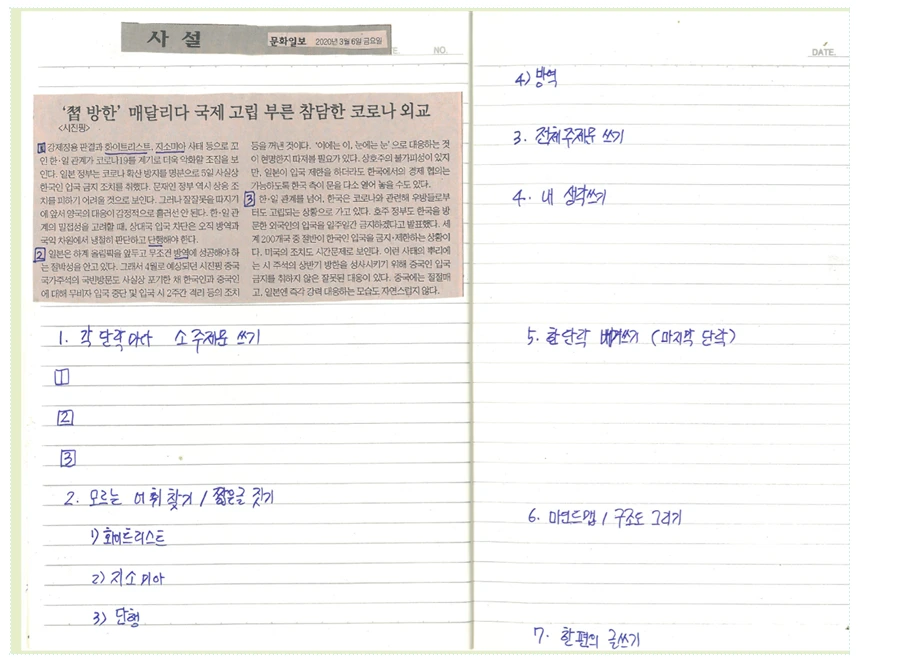 사 설
문화일보 2020년 3월 6일 금요일
NO.
'習 방한' 매달리다 국제 고립 부른 참담한 코로나 외교
<시진핑>
1 강제징용 판결과 화이트리스트, 지소미아 사태 등으로 꼬
인 한·일 관계가 코로나19를 계기로 더욱 악화할 조짐을 보
인다. 일본 정부는 코로나 확산 방지를 명분으로 5일 사실상
한국인 입국 금지 조치를 취했다. 문재인 정부 역시 상응 조
치를 피하기 어려울 것으로 보인다. 그러나 잘잘못을 따지기
에 앞서 양국의 대응이 감정적으로 흘러선 안 된다. 한·일 관
계의 밀접성을 고려할 때, 상대국 입국 차단은 오직 방역과
국익 차원에서 냉철히 판단하고 단행해야 한다.
2 일본은 하계 올림픽을 앞두고 무조건 방역에 성공해야 하
는 절박성을 안고 있다. 그래서 4월로 예상되던 시진핑 중국
국가주석의 국빈방문도 사실상 포기한 채 한국인과 중국인
에 대해 무비자 입국 중단 및 입국 시 2주간 격리 등의 조치
등을 꺼낸 것이다. '이에는 이, 눈에는 눈'으로 대응하는 것
이 현명한지 따져볼 필요가 있다. 상호주의 불가피성이 있지
만, 일본이 입국 제한을 하더라도 한국에서의 경제 협의는
가능하도록 한국 측이 문을 다소 열어 놓을 수도 있다.
3 한·일 관계를 넘어, 한국은 코로나와 관련해 우방들로부
터도 고립되는 상황으로 가고 있다. 호주 정부도 한국을 방
문한 외국인의 입국을 일주일간 금지하겠다고 발표했다. 세
계 200개국 중 절반이 한국인 입국을 금지·제한하는 상황이
다. 미국의 조치도 시간문제로 보인다. 이런 사태의 뿌리에
는 시 주석의 상반기 방한을 성사시키기 위해 중국인 입국
금지를 취하지 않은 잘못된 대응이 있다. 중국에는 절절매
고, 일본엔 즉각 강력 대응하는 모습도 자연스럽지 않다.
1. 각 단락마다 소주제문 쓰기
1
2
3
2. 모르는 어휘 찾기 / 짧은글 짓기
1) 화이트리스트
2) 지소미아
3) 단행
DATE.
4) 방역
3. 전체주제문 쓰기
4. 내 생각쓰기
5. 한단락 베껴쓰기 (마지막 단락)
6. 마인드맵 / 구조도 그리기
7. 한편의 글쓰기